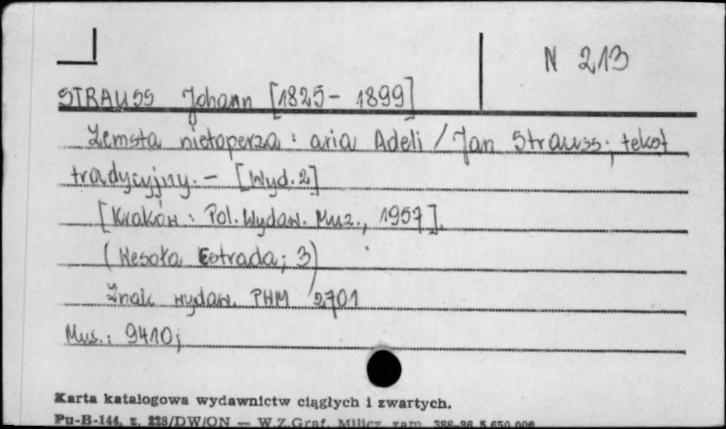 N 213
STRAUSS Johann [1825 - 1899]
Zemsta nietoperza : aria Adeli / Jan Strauss ; tekst
tradycyjny. - [Wyd. 2]
[Kraków : Pol. Wydaw. Muz., 1957].
(Wesoła Estrada ; 3)
Znak wydaw. PWM 2701
Mus.: 9410;
Karta katalogowa wydawnictw ciągłych i zwartych.
Pu-B-144, z. 228/DW/ON — W.Z.Graf. Milicz zam.